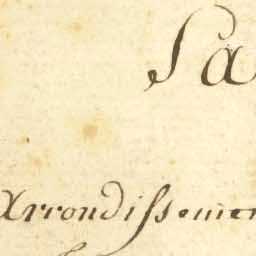 Pa
Arrondissemen